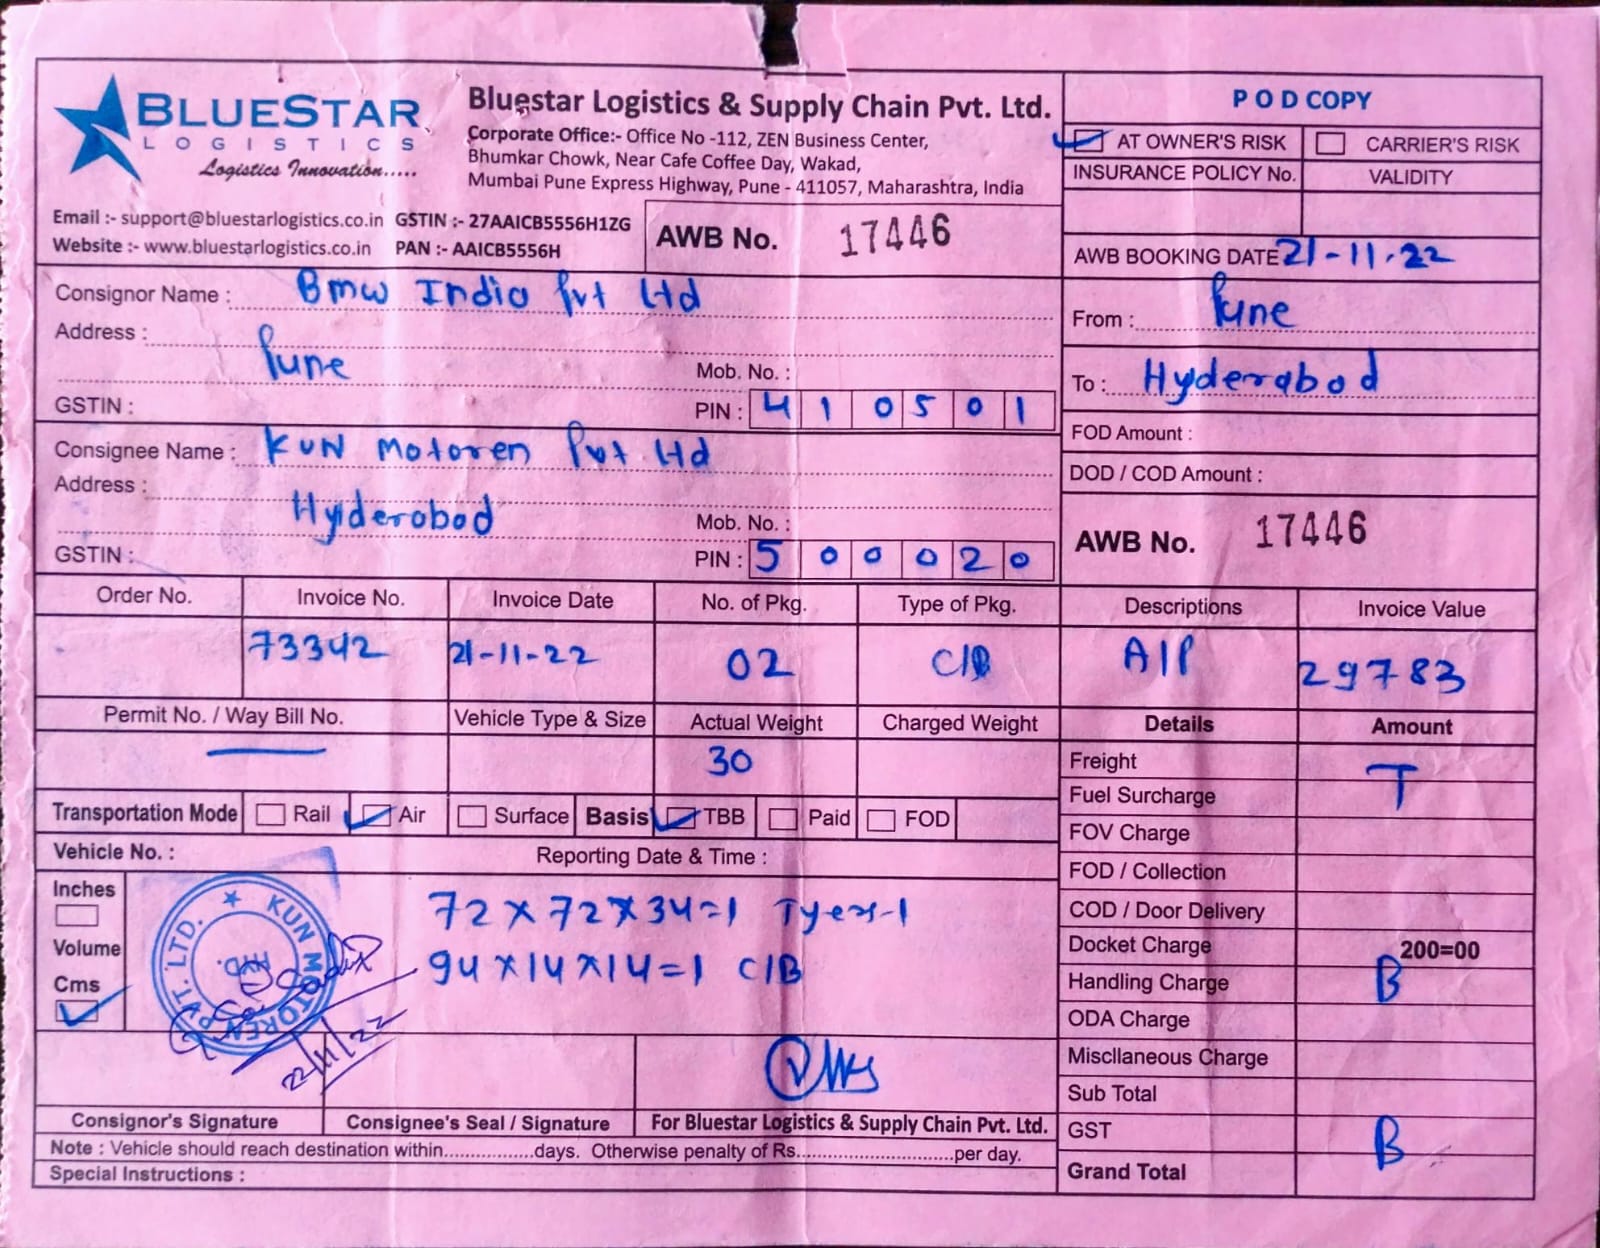 BLUESTAR
LOGISTICS
Logistics Innovation.....
Bluestar Logistics & Supply Chain Pvt. Ltd.
Corporate Office:- Office No -112, ZEN Business Center,
Bhumkar Chowk, Near Cafe Coffee Day, Wakad,
Mumbai Pune Express Highway, Pune - 411057, Maharashtra, India
Email :- support@bluestarlogistics.co.in GSTIN :- 27AAICB5556H1ZG
Website :- www.bluestarlogistics.co.in PAN :- AAICB5556H
AWB No. 17446
POD COPY
AT OWNER'S RISK CARRIER'S RISK
INSURANCE POLICY No. VALIDITY
AWB BOOKING DATE 21-11-22
From : Pune
To : Hyderabod
FOD Amount :
DOD / COD Amount :
AWB No. 17446
Consignor Name : Bmw India Pvt Ltd
Address :
Pune Mob. No. :
GSTIN : PIN : 410501
Consignee Name : KUN Motoren Pvt Ltd
Address :
Hyderobod Mob. No. :
GSTIN : PIN : 500020
Order No. Invoice No. Invoice Date No. of Pkg. Type of Pkg. Descriptions Invoice Value
73342 21-11-22 02 C/B A/P 29783
Permit No. / Way Bill No. Vehicle Type & Size Actual Weight Charged Weight Details Amount
30
Transportation Mode Rail Air Surface Basis TBB Paid FOD
Vehicle No. : Reporting Date & Time :
Inches
Volume
Cms
72x72x34=1 Tyer-1
94x14x14=1 C/B
KUN MOTOREN PVT. LTD.
HYD.
22/11/22
Freight T
Fuel Surcharge
FOV Charge
FOD / Collection
COD / Door Delivery
Docket Charge 200=00
Handling Charge B
ODA Charge
Miscllaneous Charge
Sub Total
GST B
Grand Total
Consignor's Signature Consignee's Seal / Signature For Bluestar Logistics & Supply Chain Pvt. Ltd.
Note : Vehicle should reach destination within.................days. Otherwise penalty of Rs..............................per day.
Special Instructions :